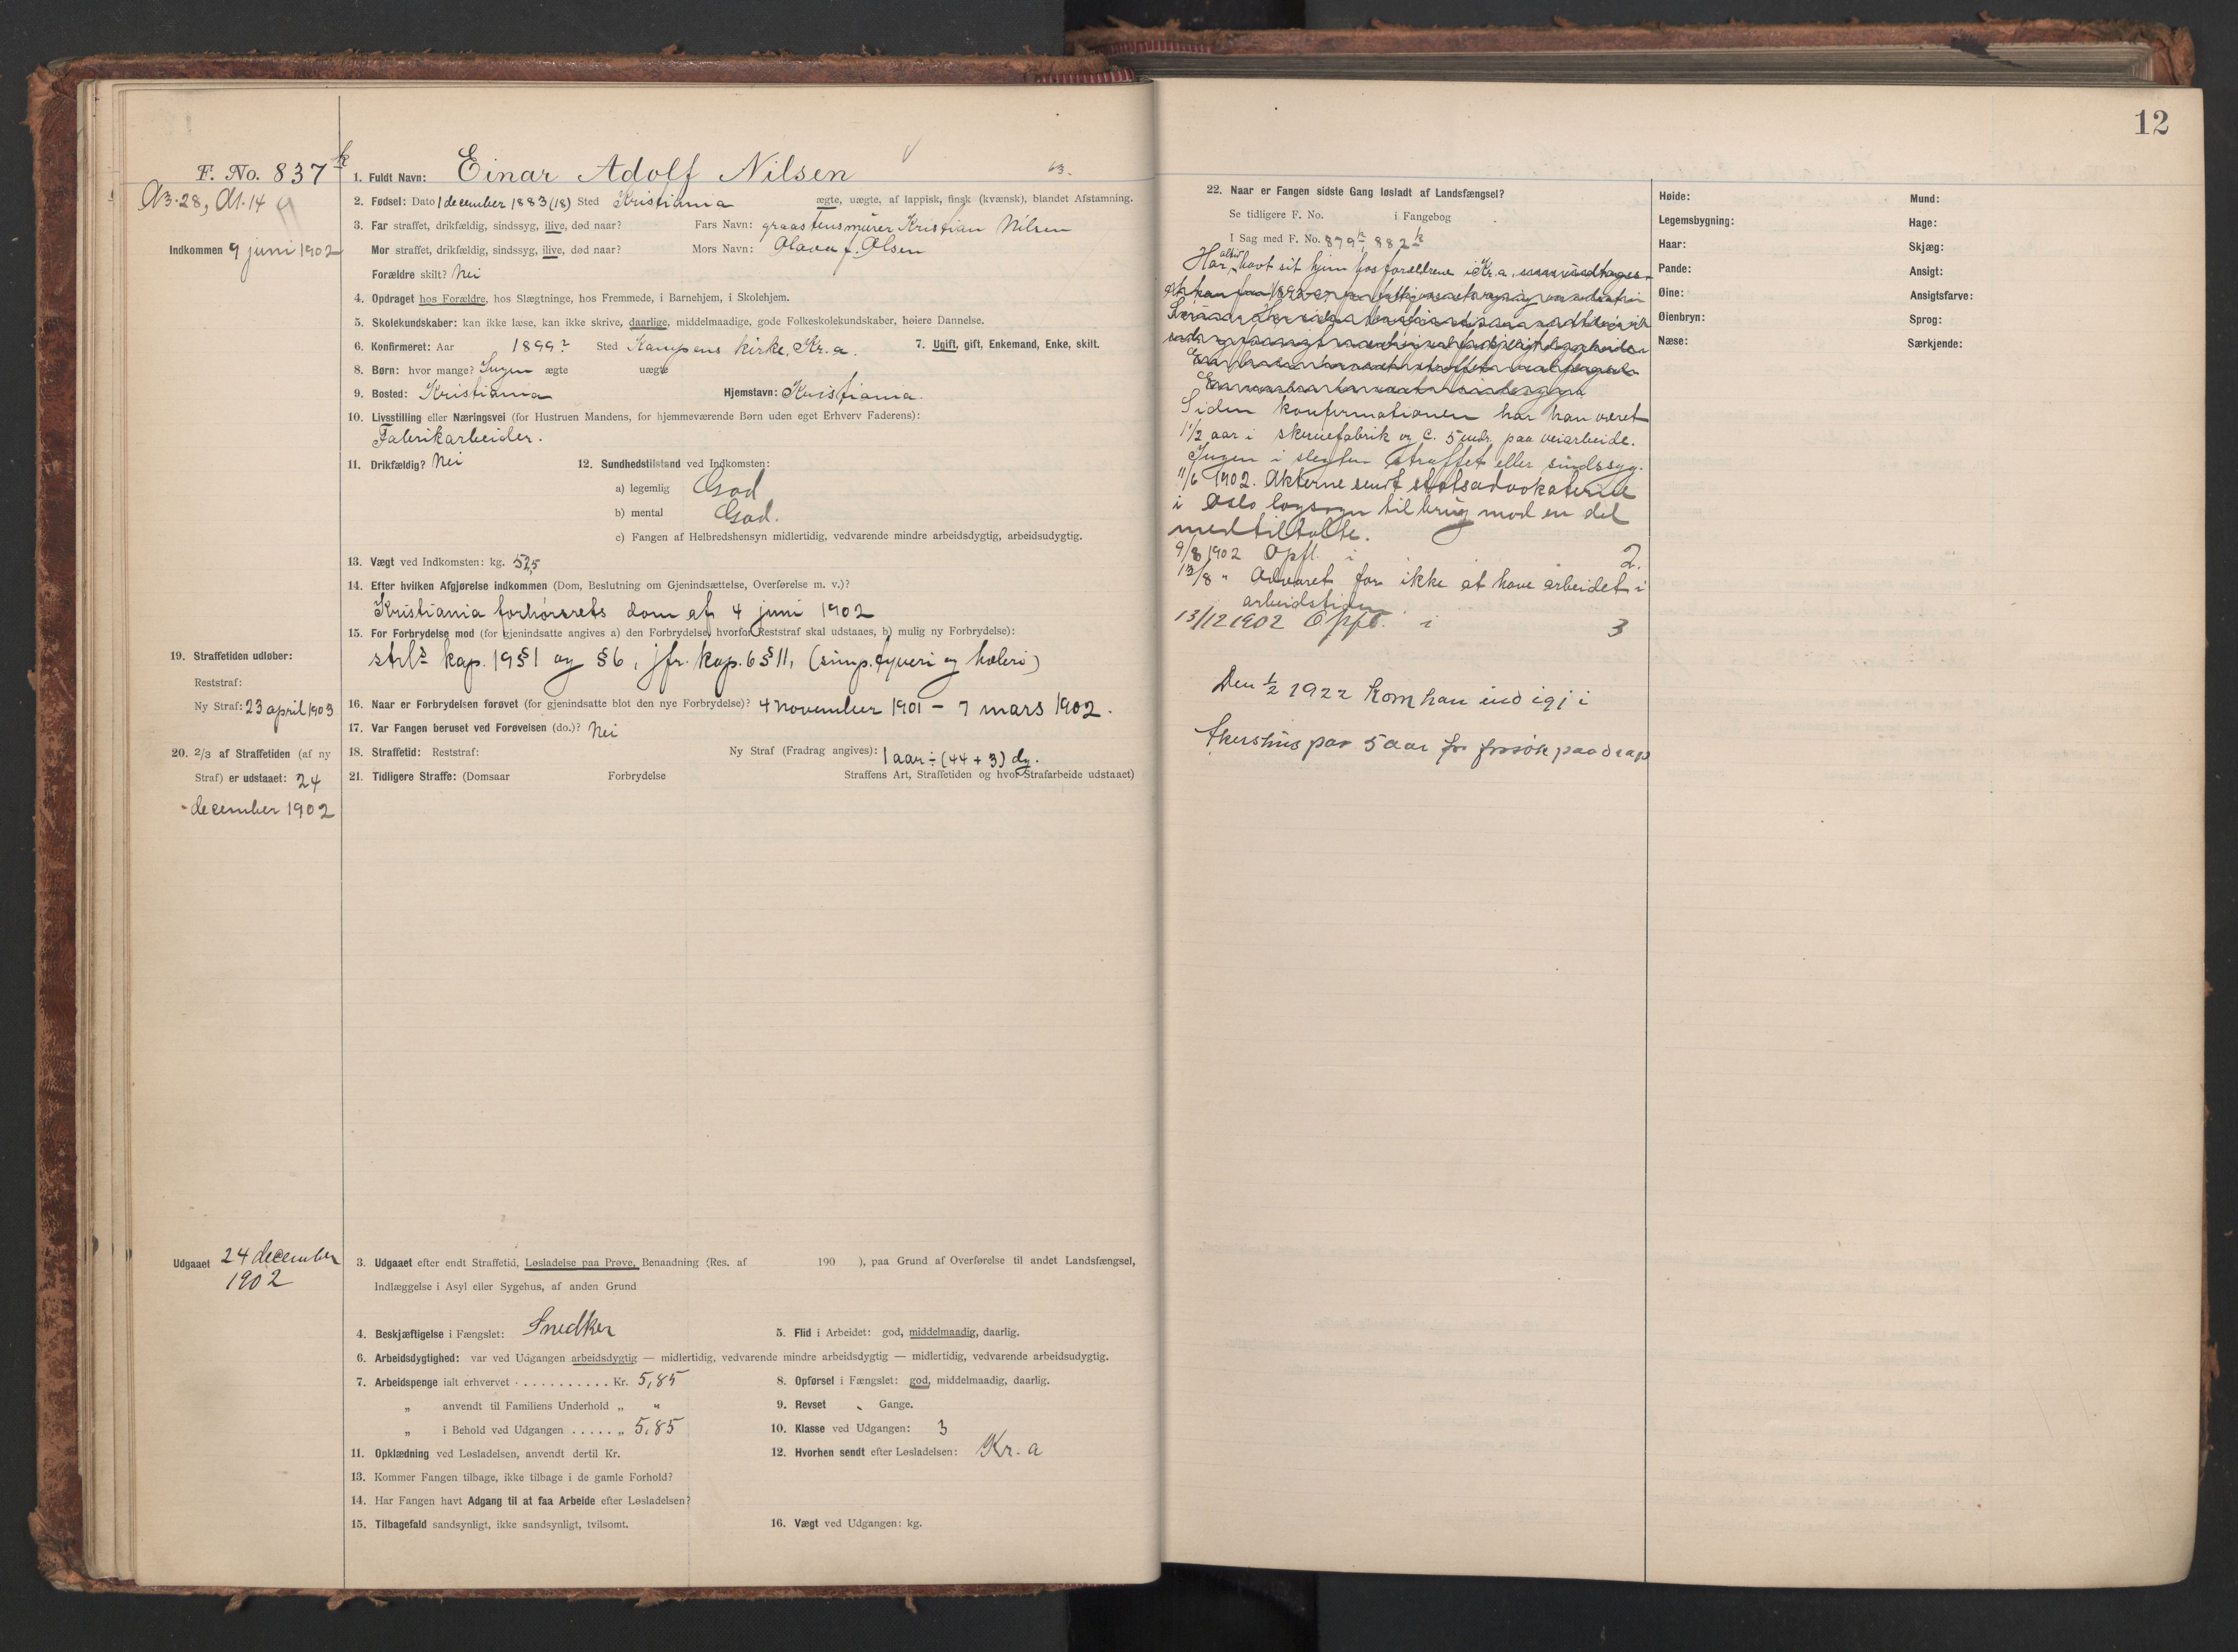 12
F. No. 837 k
A3.28, A1.14
Indkommen 9 juni 1902
1. Fuldt Navn: Einar Adolf Nilsen 63.
2. Fødsel: Dato 1 december 1883 (18) Sted Kristiania ægte, uægte, af lappisk, finsk (kvænsk), blandet Afstamning.
3. Far straffet, drikfældig, sindssyg, ilive, død naar? Fars Navn: graastensmurer Kristian Nilsen
Mor straffet, drikfældig, sindssyg, ilive, død naar? Mors Navn: Olava f. Olsen
Forældre skilt? Nei
4. Opdraget hos Forældre, hos Slægtninge, hos Fremmede, i Barnehjem, i Skolehjem.
5. Skolekundskaber: kan ikke læse, kan ikke skrive, daarlige, middelmaadige, gode Folkeskolekundskaber, høiere Dannelse.
6. Konfirmeret: Aar 1899? Sted Kampens kirke, Kr.a. 7. Ugift, gift, Enkemand, Enke, skilt.
8. Børn: hvor mange? Ingen ægte uægte
9. Bosted: Kristiania Hjemstavn: Kristiania.
10. Livsstilling eller Næringsvei (for Hustruen Mandens, for hjemmeværende Børn uden eget Erhverv Faderens):
Fabrikarbeider.
11. Drikfældig? Nei 12. Sundhedstilstand ved Indkomsten:
a) legemlig God
b) mental God.
c) Fangen af Helbredshensyn midlertidig, vedvarende mindre arbeidsdygtig, arbeidsudygtig.
13. Vægt ved Indkomsten: kg. 52,5
14. Efter hvilken Afgjørelse indkommen (Dom, Beslutning om Gjenindsættelse, Overførelse m. v.)?
Kristiania forhørsrets dom af 4 juni 1902
15. For Forbrydelse mod (for gjenindsatte angives a) den Forbrydelse, hvorfor Reststraf skal udstaaes, b) mulig ny Forbrydelse):
strl's kap. 19 § 1 og § 6, jfr. kap. 6 § 11, (simp. tyveri og hæleri)
19. Straffetiden udløber:
Reststraf:
Ny Straf: 23 april 1903
16. Naar er Forbrydelsen forøvet (for gjenindsatte blot den nye Forbrydelse)? 4 november 1901 – 7 mars 1902.
17. Var Fangen beruset ved Forøvelsen (do.)? Nei
20. 2/3 af Straffetiden (af ny
Straf) er udstaaet: 24
december 1902
18. Straffetid: Reststraf: Ny Straf (Fradrag angives): 1 aar ÷ (44 + 3) dg.
21. Tidligere Straffe: (Domsaar Forbrydelse Straffens Art, Straffetiden og hvor Strafarbeide udstaaet)
Udgaaet 24 december
1902
3. Udgaaet efter endt Straffetid, Løsladelse paa Prøve, Benaadning (Res. af 190 ), paa Grund af Overførelse til andet Landsfængsel,
Indlæggelse i Asyl eller Sygehus, af anden Grund
4. Beskjæftigelse i Fængslet: Snedker 5. Flid i Arbeidet: god, middelmaadig, daarlig.
6. Arbeidsdygtighed: var ved Udgangen arbeidsdygtig — midlertidig, vedvarende mindre arbeidsdygtig — midlertidig, vedvarende arbeidsudygtig.
7. Arbeidspenge ialt erhvervet . . . . . . . . . . . Kr. 5,85 8. Opførsel i Fængslet: god, middelmaadig, daarlig.
„ anvendt til Familiens Underhold „ „ 9. Revset Gange.
„ i Behold ved Udgangen . . . . . „ 5,85 10. Klasse ved Udgangen: 3
11. Opklædning ved Løsladelsen, anvendt dertil Kr. 12. Hvorhen sendt efter Løsladelsen: Kr. a
13. Kommer Fangen tilbage, ikke tilbage i de gamle Forhold?
14. Har Fangen havt Adgang til at faa Arbeide efter Løsladelsen?
15. Tilbagefald sandsynligt, ikke sandsynligt, tvilsomt. 16. Vægt ved Udgangen: kg.
22. Naar er Fangen sidste Gang løsladt af Landsfængsel?
Se tidligere F. No. i Fangebog
I Sag med F. No. 879 k, 882 k
Har altid havt sit hjem hos forældrene i Kr.a.
Siden konfirmationen har han været
1 1/2 aar i skruefabrik og c. 5 mdr. paa veiarbeide.
Ingen i slegten straffet eller sindssyg.
11/6 1902. Akterne sendt statsadvokaterne
i Oslo lagsogn til brug mod en del
medtiltalte.
9/8 1902 Opfl. i 2.
13/8 " Advaret for ikke at have arbeidet i
arbeidstiden.
13/12 1902 Opfl. i 3
Den 1/2 1922 kom han ind igj i
Akershus paa 5 aar for forsøk paa drap
Høide:
Legemsbygning:
Haar:
Pande:
Øine:
Øienbryn:
Næse:
Mund:
Hage:
Skjæg:
Ansigt:
Ansigtsfarve:
Sprog:
Særkjende: